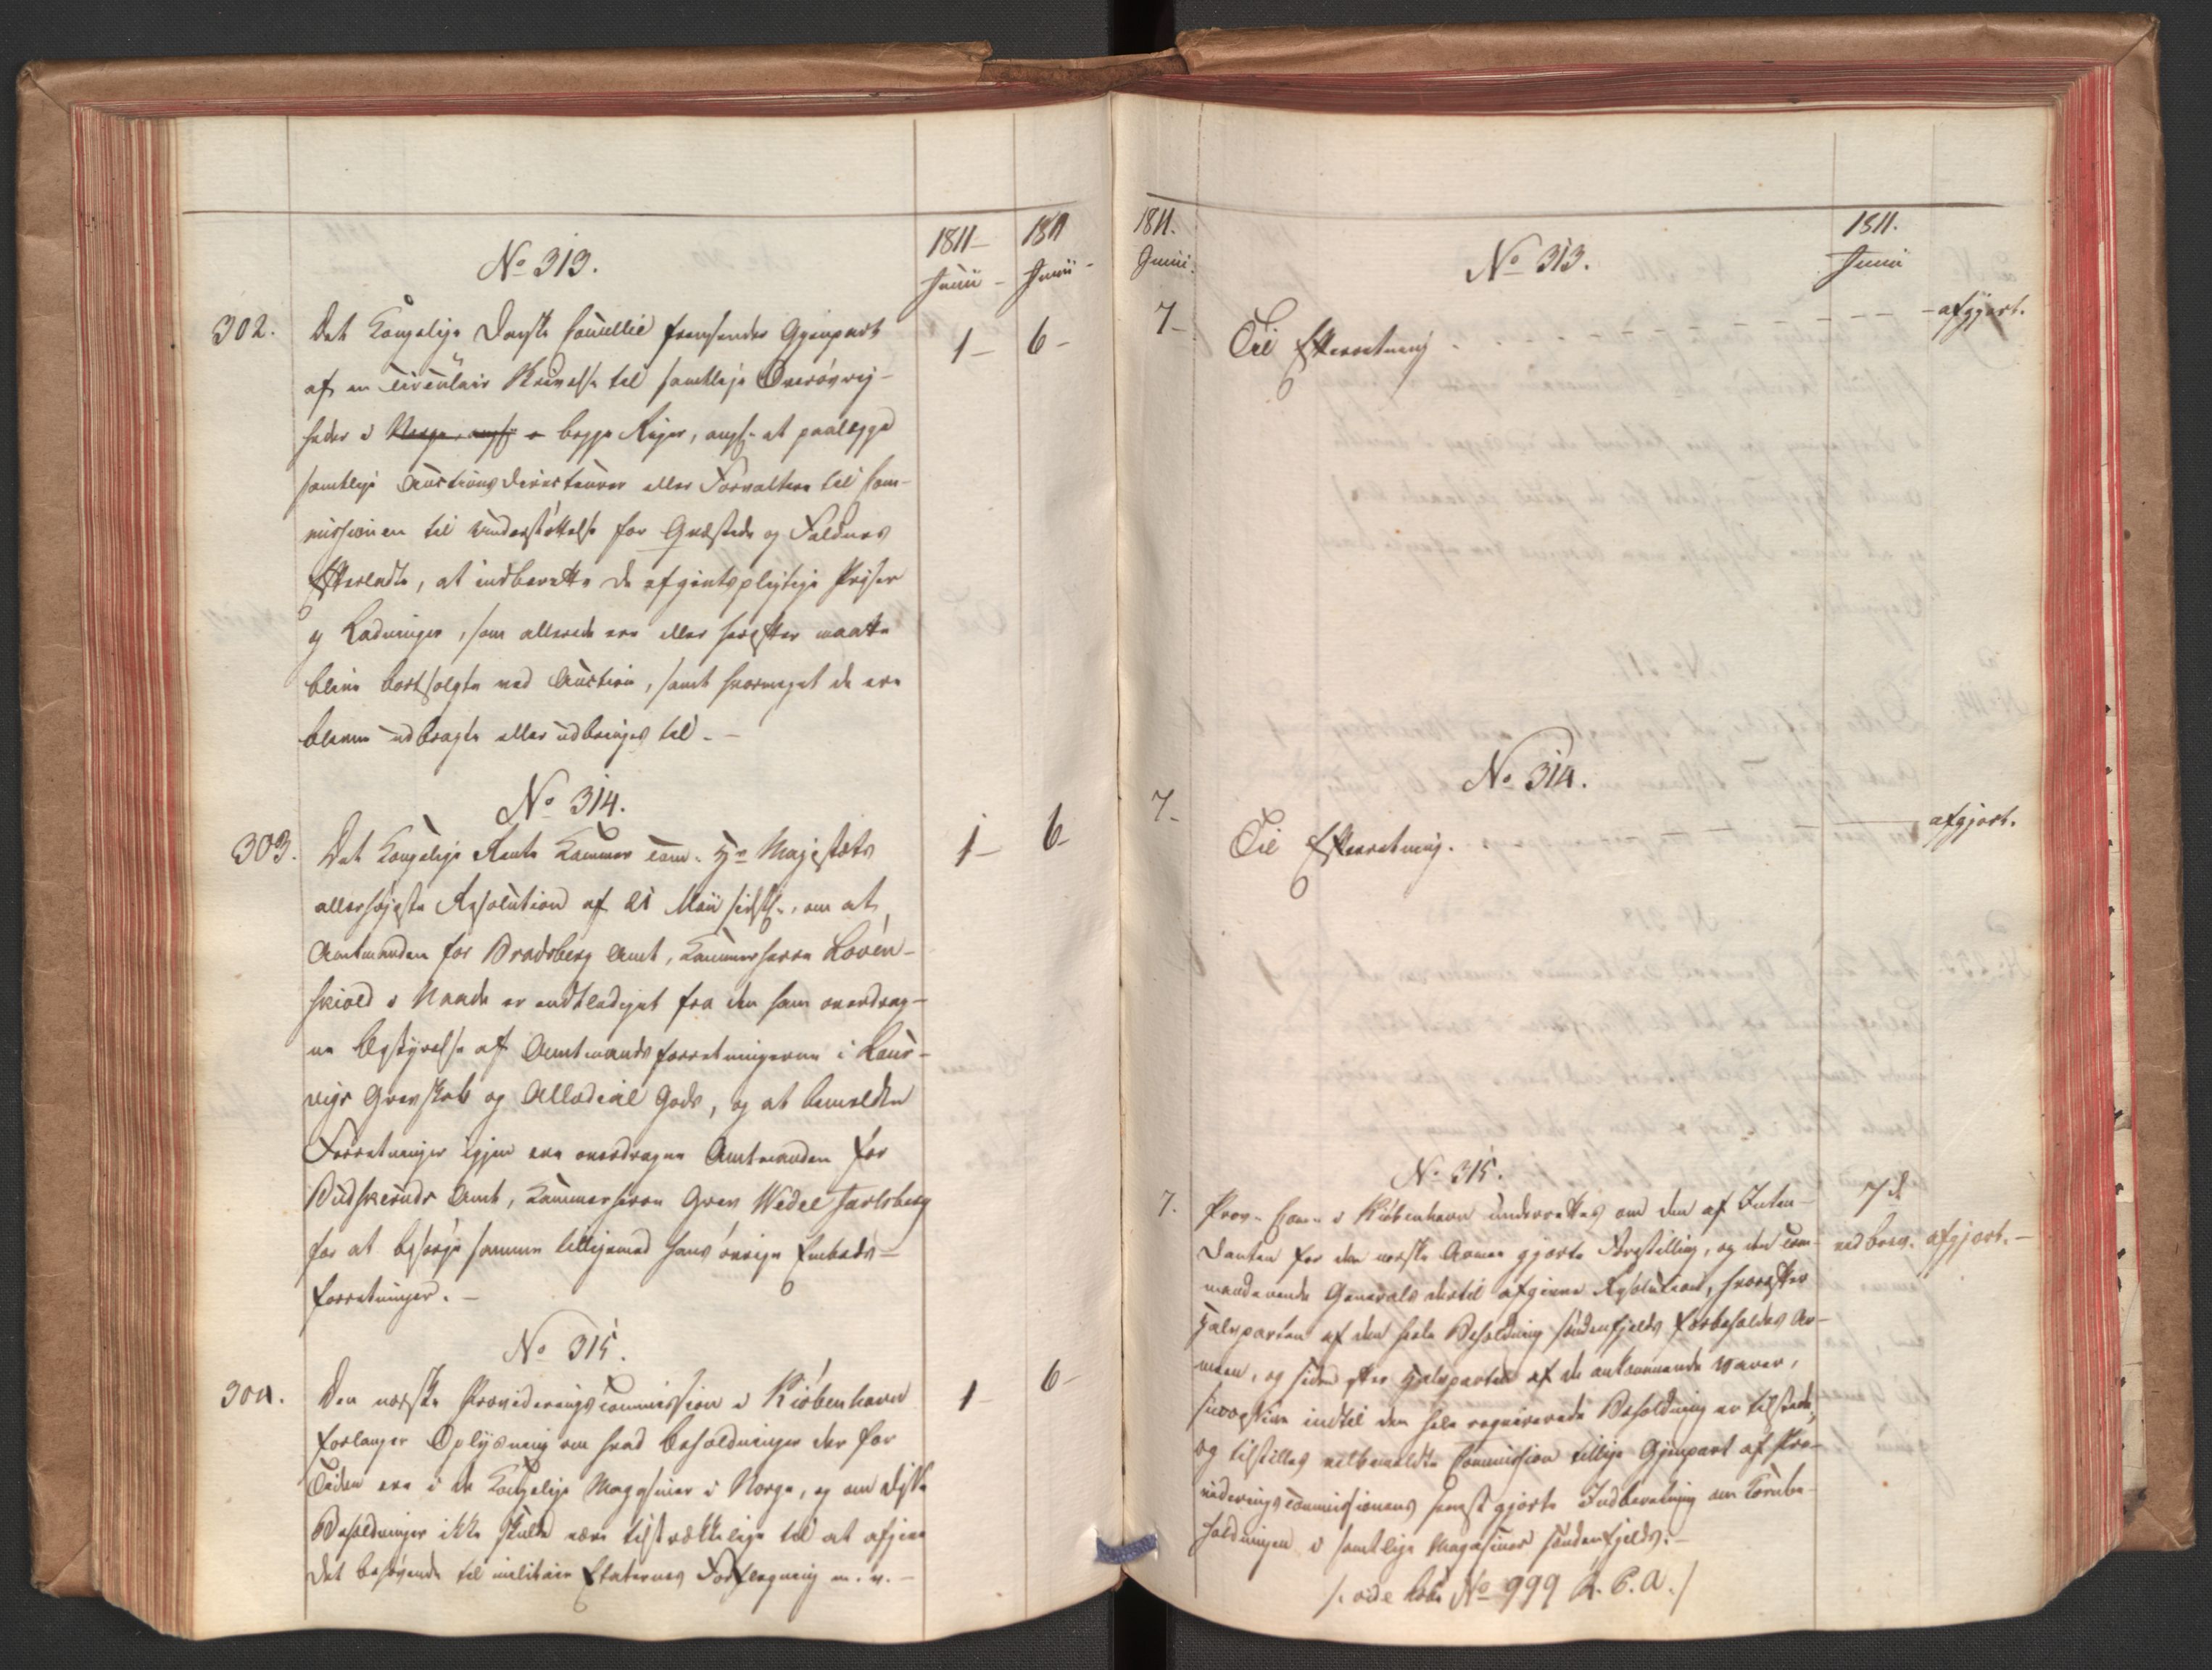 1811
Junii
1811
Junii
No 313.
302.
Det Kongelige Danske Cancellie fremsender Gjenpart
1
6
af en circulair Skrivelse til samtlige Overøvrig-
heder i Norge, angd. begge Riger, angd. at paalægge
samtlige Auctionsdirecteurer eller Forvaltere til Com-
missionen til Understøttelse for Qvæstede og Faldnes
Efterladte, at indberette de afgivtspligtige Priser
og Ladninger, som allerede ere eller herefter maatte
blive bortsolgte ved Auction, samt hvormeget de ere
blevne udbragte eller udbringes til.
No 314.
303.
Det Kongelige Rente Kammer com. Hs Majestæts
1
6
allerhøjeste Resolution af 21 Maii sidstl., om at
Amtmanden for Bradsberg Amt, Kammerherre Løven-
skiold i Naade er entlediget fra den ham overdrag-
ne Bestyrelse af Amtmandsforretningerne i Laur-
vigs Grevskab og Allodial Gods, og at bemeldte
Forretninger igjen ere overdragne Amtmanden for
Budskeruds Amt, Kammerherre Grev Wedel Jarlsberg
for at besørge samme tilligemed hans øvrige Embeds-
forretninger.
No 315.
304.
Den norske Provideringscommission i Kiøbenhavn
1
6
forlanger Oplysning om hvad Beholdninger der for
Tiden ere i de Kongelige Magasiner i Norge, og om disse
Beholdninger ikke skulde være tilstrækkelige til at afgive
det behøvende til militaire Etaternes Forflegning m. v.
1811.
Junii
No 313.
1811.
Junii
7
Til Efterretning
afgjort.
No 314.
7
Til Efterretning.
afgjort.
No 315.
7.
Prov. Com. i Kiøbenhavn underrettes om den af Inten-
7de
danten for den norske Armee gjorte Forestilling, og den com-
ved brev. afgjort.
manderende Generals dertil afgivne Resolution, hvorefter
Halvparten af den hele Beholdning søndenfjelds forbeholdes Ar-
meen, og siden efter Halvparten af de ankommende Varer,
indtil den hele reqvirerede Beholdning er tilstede,
og tilstilles velbemeldte Commission tillige Gjenpart af Pro-
videringscommissionens senest gjorte Indberetning om Kornbe-
holdningen i samtlige Magasiner søndenfjelds.
/: vide No 999 R. C. A. /